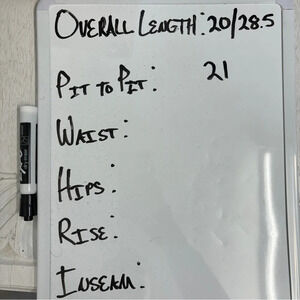 OVERALL LENGTH: 20/28.5
PIT TO PIT: 21
WAIST:
HIPS:
RISE:
INSEAM: